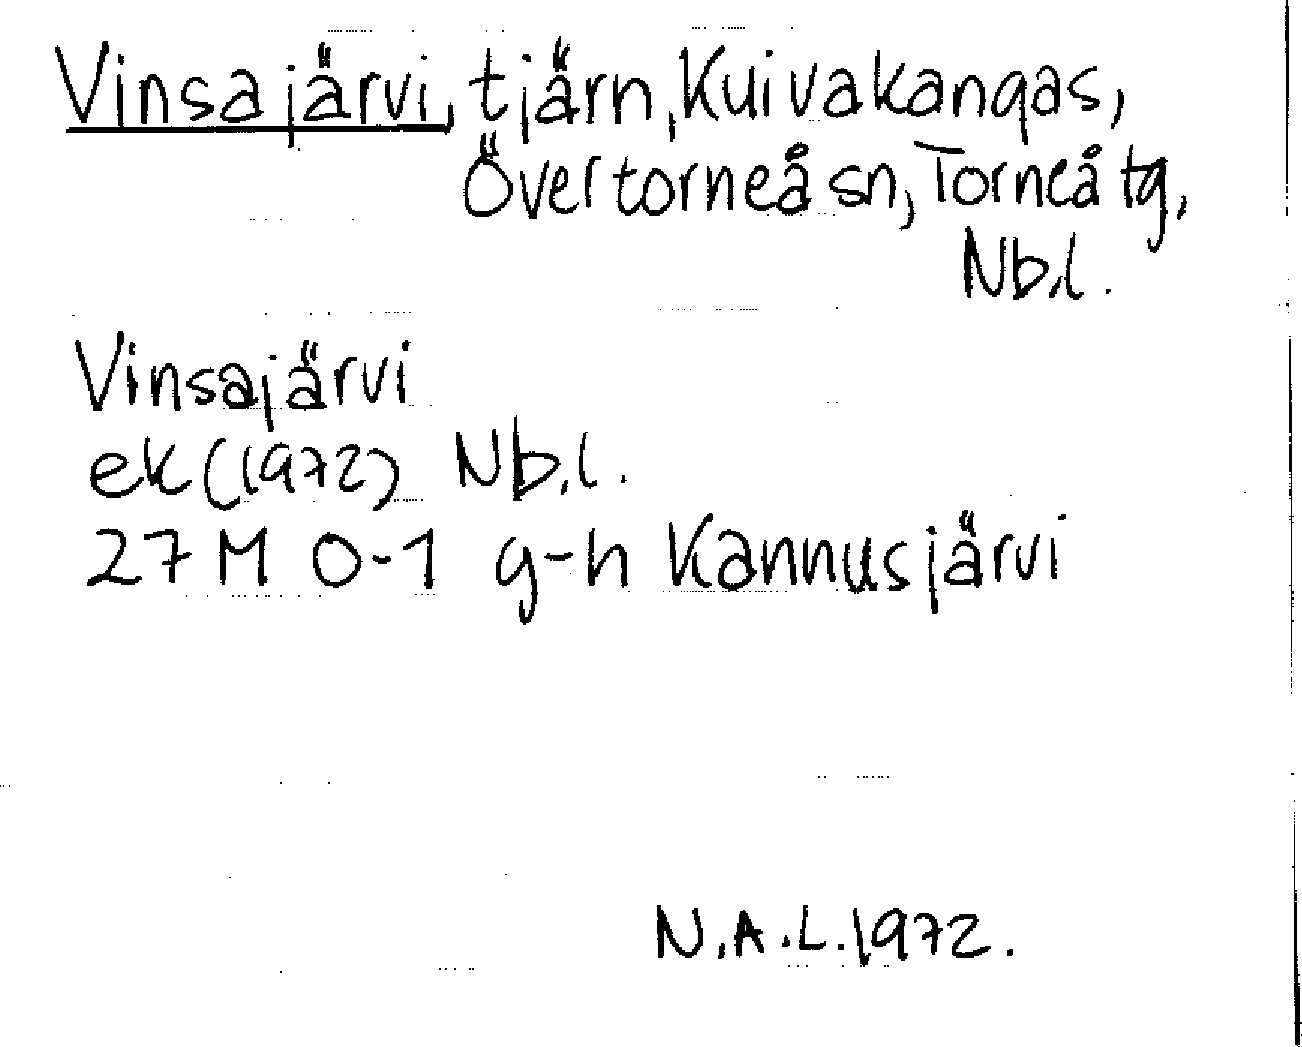 Vinsajärvi, tjärn, Kuivakangas,
Övertorneå sn, Torneå tg,
Nb.l.
Vinsajärvi
ek (1972) Nb.l.
27 M 0-1 g-h Kannusjärvi
N.A.L. 1972.